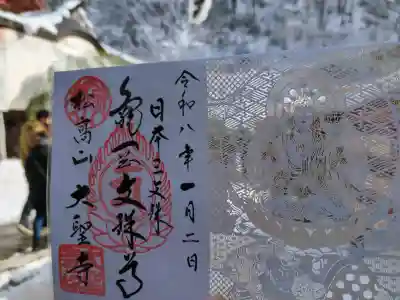 令和八年一月二日
日本三文殊
亀岡文殊尊
松高山大聖寺